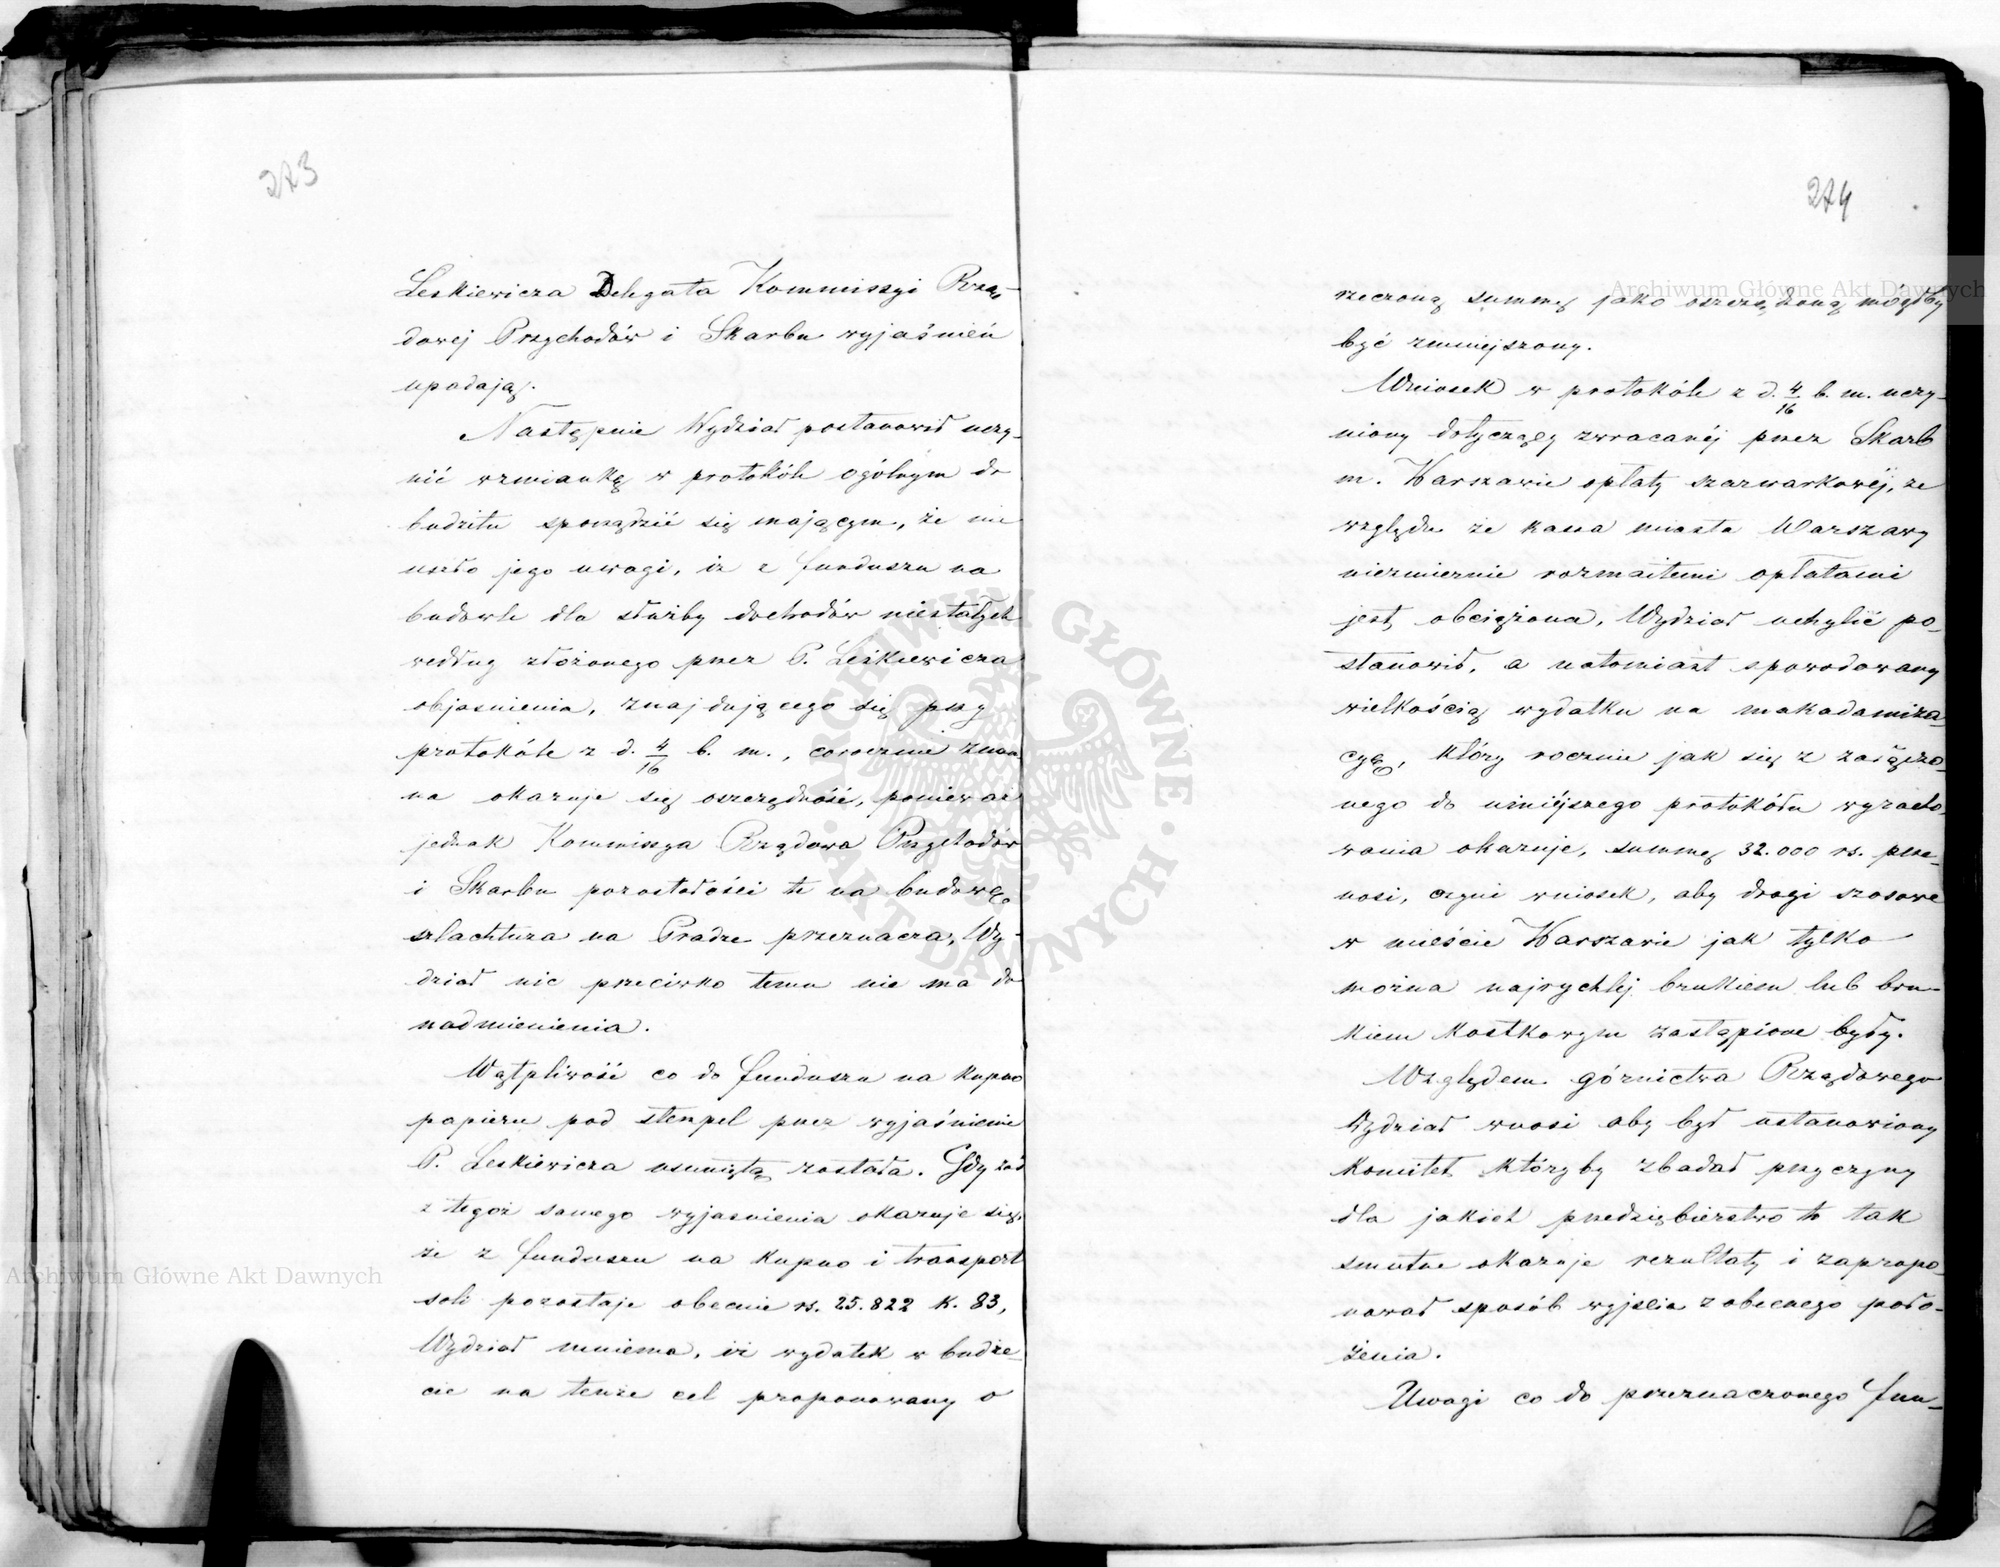 273
Leskiewicza Delegata Kommissyi Rzą-
dowej Przychodów i Skarbu wyjaśnień
upadają.
Następnie Wydział postanowił uczy-
nić wzmiankę w protokóle ogólnym do
budżetu sporządzić się mającym, że nie
uszło jego uwagi, iż z funduszu na
budowle dla służby dochodów niestałych
według złożonego przez P. Leskiewicza
objasnienia, znajdującego się przy
protokóle z d. 4/16 b. m., corocznie znacz-
na okazuje się oszczędność, ponieważ
jednak Kommissya Rządowa Przychodów
i Skarbu pozostałości te na budowę
szlachtuza na Pradze przeznacza, Wy-
dział nic przeciwko temu nie ma do
nadmienienia.
Wątpliwość co do funduszu na kupno
papieru pod stempel przez wyjaśnienie
P. Leskiewicza usuniętą została. Gdy zaś
z tegoż samego wyjasnienia okazuje się,
że z funduszu na kupno i transport
soli pozostaje obecnie rs. 25.822 k. 83,
Wydział mniema, iż wydatek w budże-
cie na tenże cel proponowany o
274
rzeczoną summę jako oszczędzoną mógłby
być zmniejszony.
Wniosek w protokóle z d. 4/16 b. m. uczy-
niony dotyczący zwracanéj przez Skarb
m. Warszawie opłaty szarwarkowéj, ze
względu że kassa miasta Warszawy
niezmiernie rozmaitemi opłatami
jest obciążona, Wydział uchylić po-
stanowił, a natomiast spowodowany
wielkością wydatku na makadamiza-
cyę, który rocznie jak się z załączo-
nego do niniéjszego protokółu wyracho-
wania okazuje, summę 32.000 rs. prze-
nosi, czyni wniosek, aby drogi szosowe
w mieście Warszawie jak tylko
można najrychléj brukiem lub bru-
kiem kostkowym zastąpione były.
Względem górnictwa Rządowego
Wydział wnosi aby był ustanowiony
Komitet któryby zbadał przyczyny
dla jakich przedsiębierstwo to tak
smutne okazuje rezultaty i zapropo-
nował sposób wyjścia z obecnego poło-
żenia.
Uwagi co do przeznaczonego fun-
Archiwum Główne Akt Dawnych
Archiwum Główne Akt Dawnych
ARCHIWUM GŁÓWNE AKT DAWNYCH